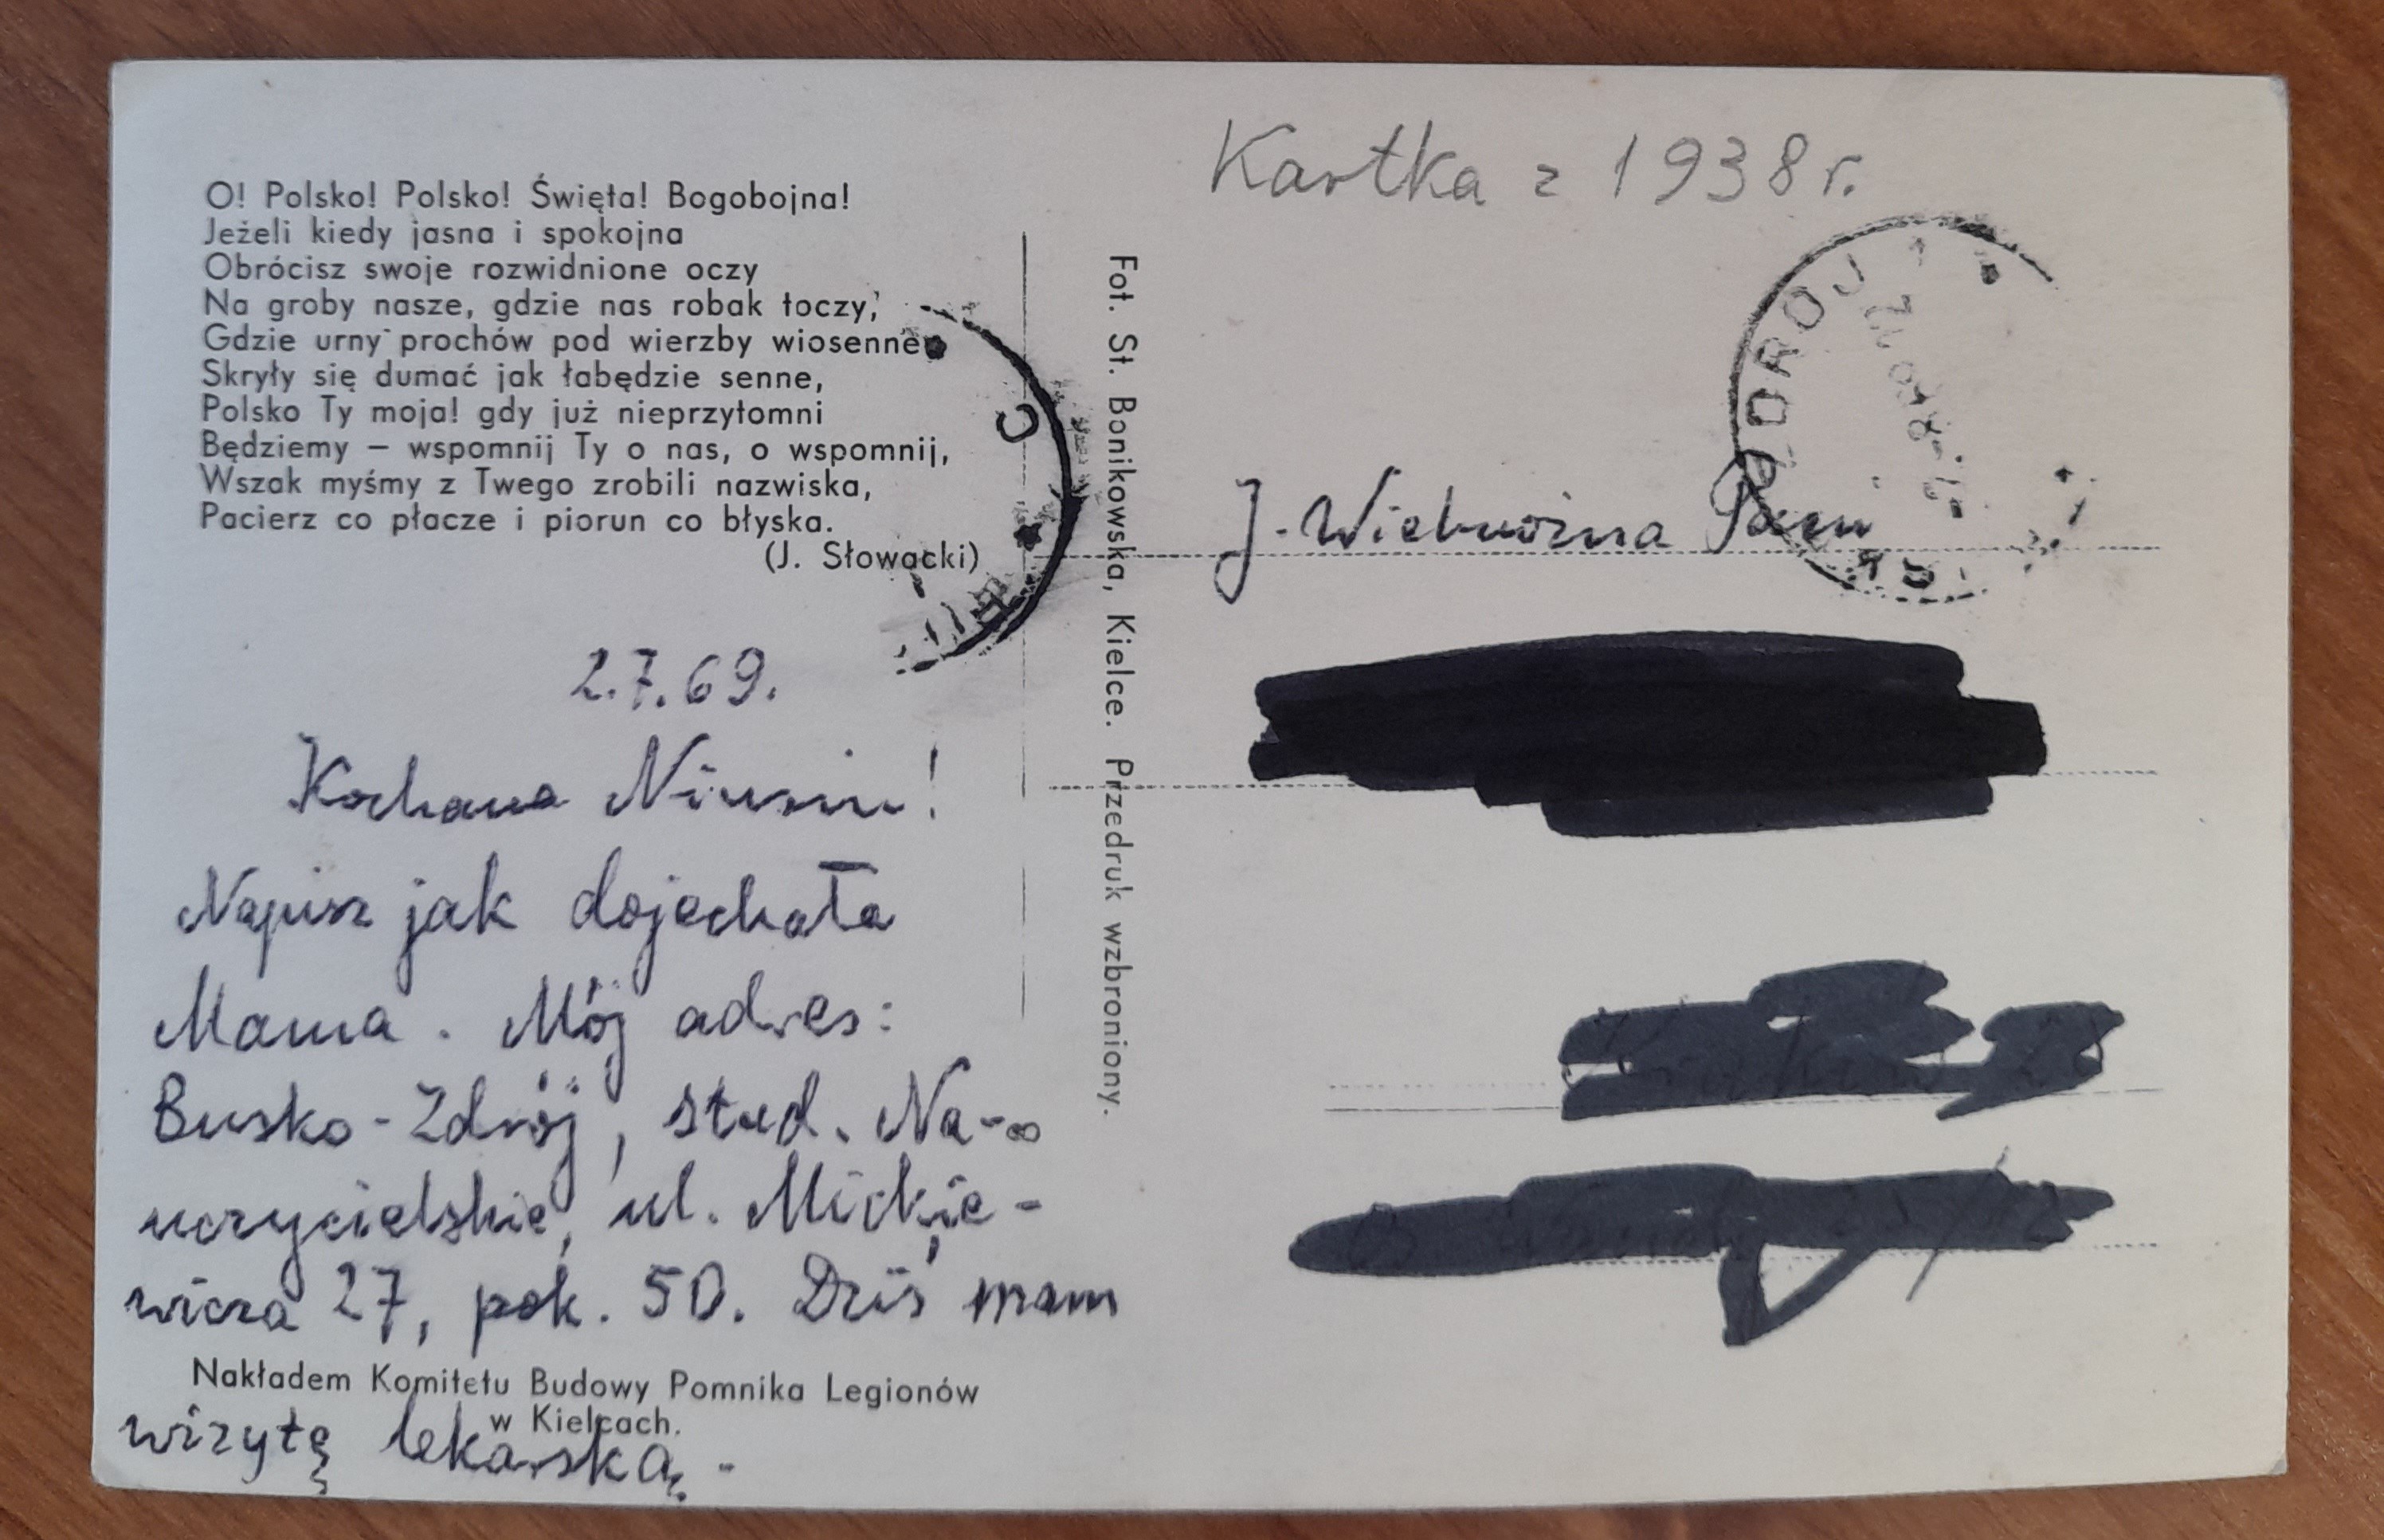 O! Polsko! Polsko! Święta! Bogobojna!
Jeżeli kiedy jasna i spokojna
Obrócisz swoje rozwidnione oczy
Na groby nasze, gdzie nas robak toczy,
Gdzie urny prochów pod wierzby wiosenne
Skryły się dumać jak łabędzie senne,
Polsko Ty moja! gdy już nieprzytomni
Będziemy – wspomnij Ty o nas, o wspomnij,
Wszak myśmy z Twego zrobili nazwiska,
Pacierz co płacze i piorun co błyska.
(J. Słowacki)
2.7.69.
Kochana Niusiu!
Napisz jak dojechała
Mama. Mój adres:
Busko-Zdrój, stud. Na-
uczycielskie, ul. Mickie-
wicza 27, pok. 50. Dziś mam
Nakładem Komitetu Budowy Pomnika Legionów
w Kielcach.
wizytę lekarską.-
Fot. St. Bonikowska, Kielce. Przedruk wzbroniony.
Kartka z 1938 r.
ZDRÓJ 1
J. Wielmożna Pani